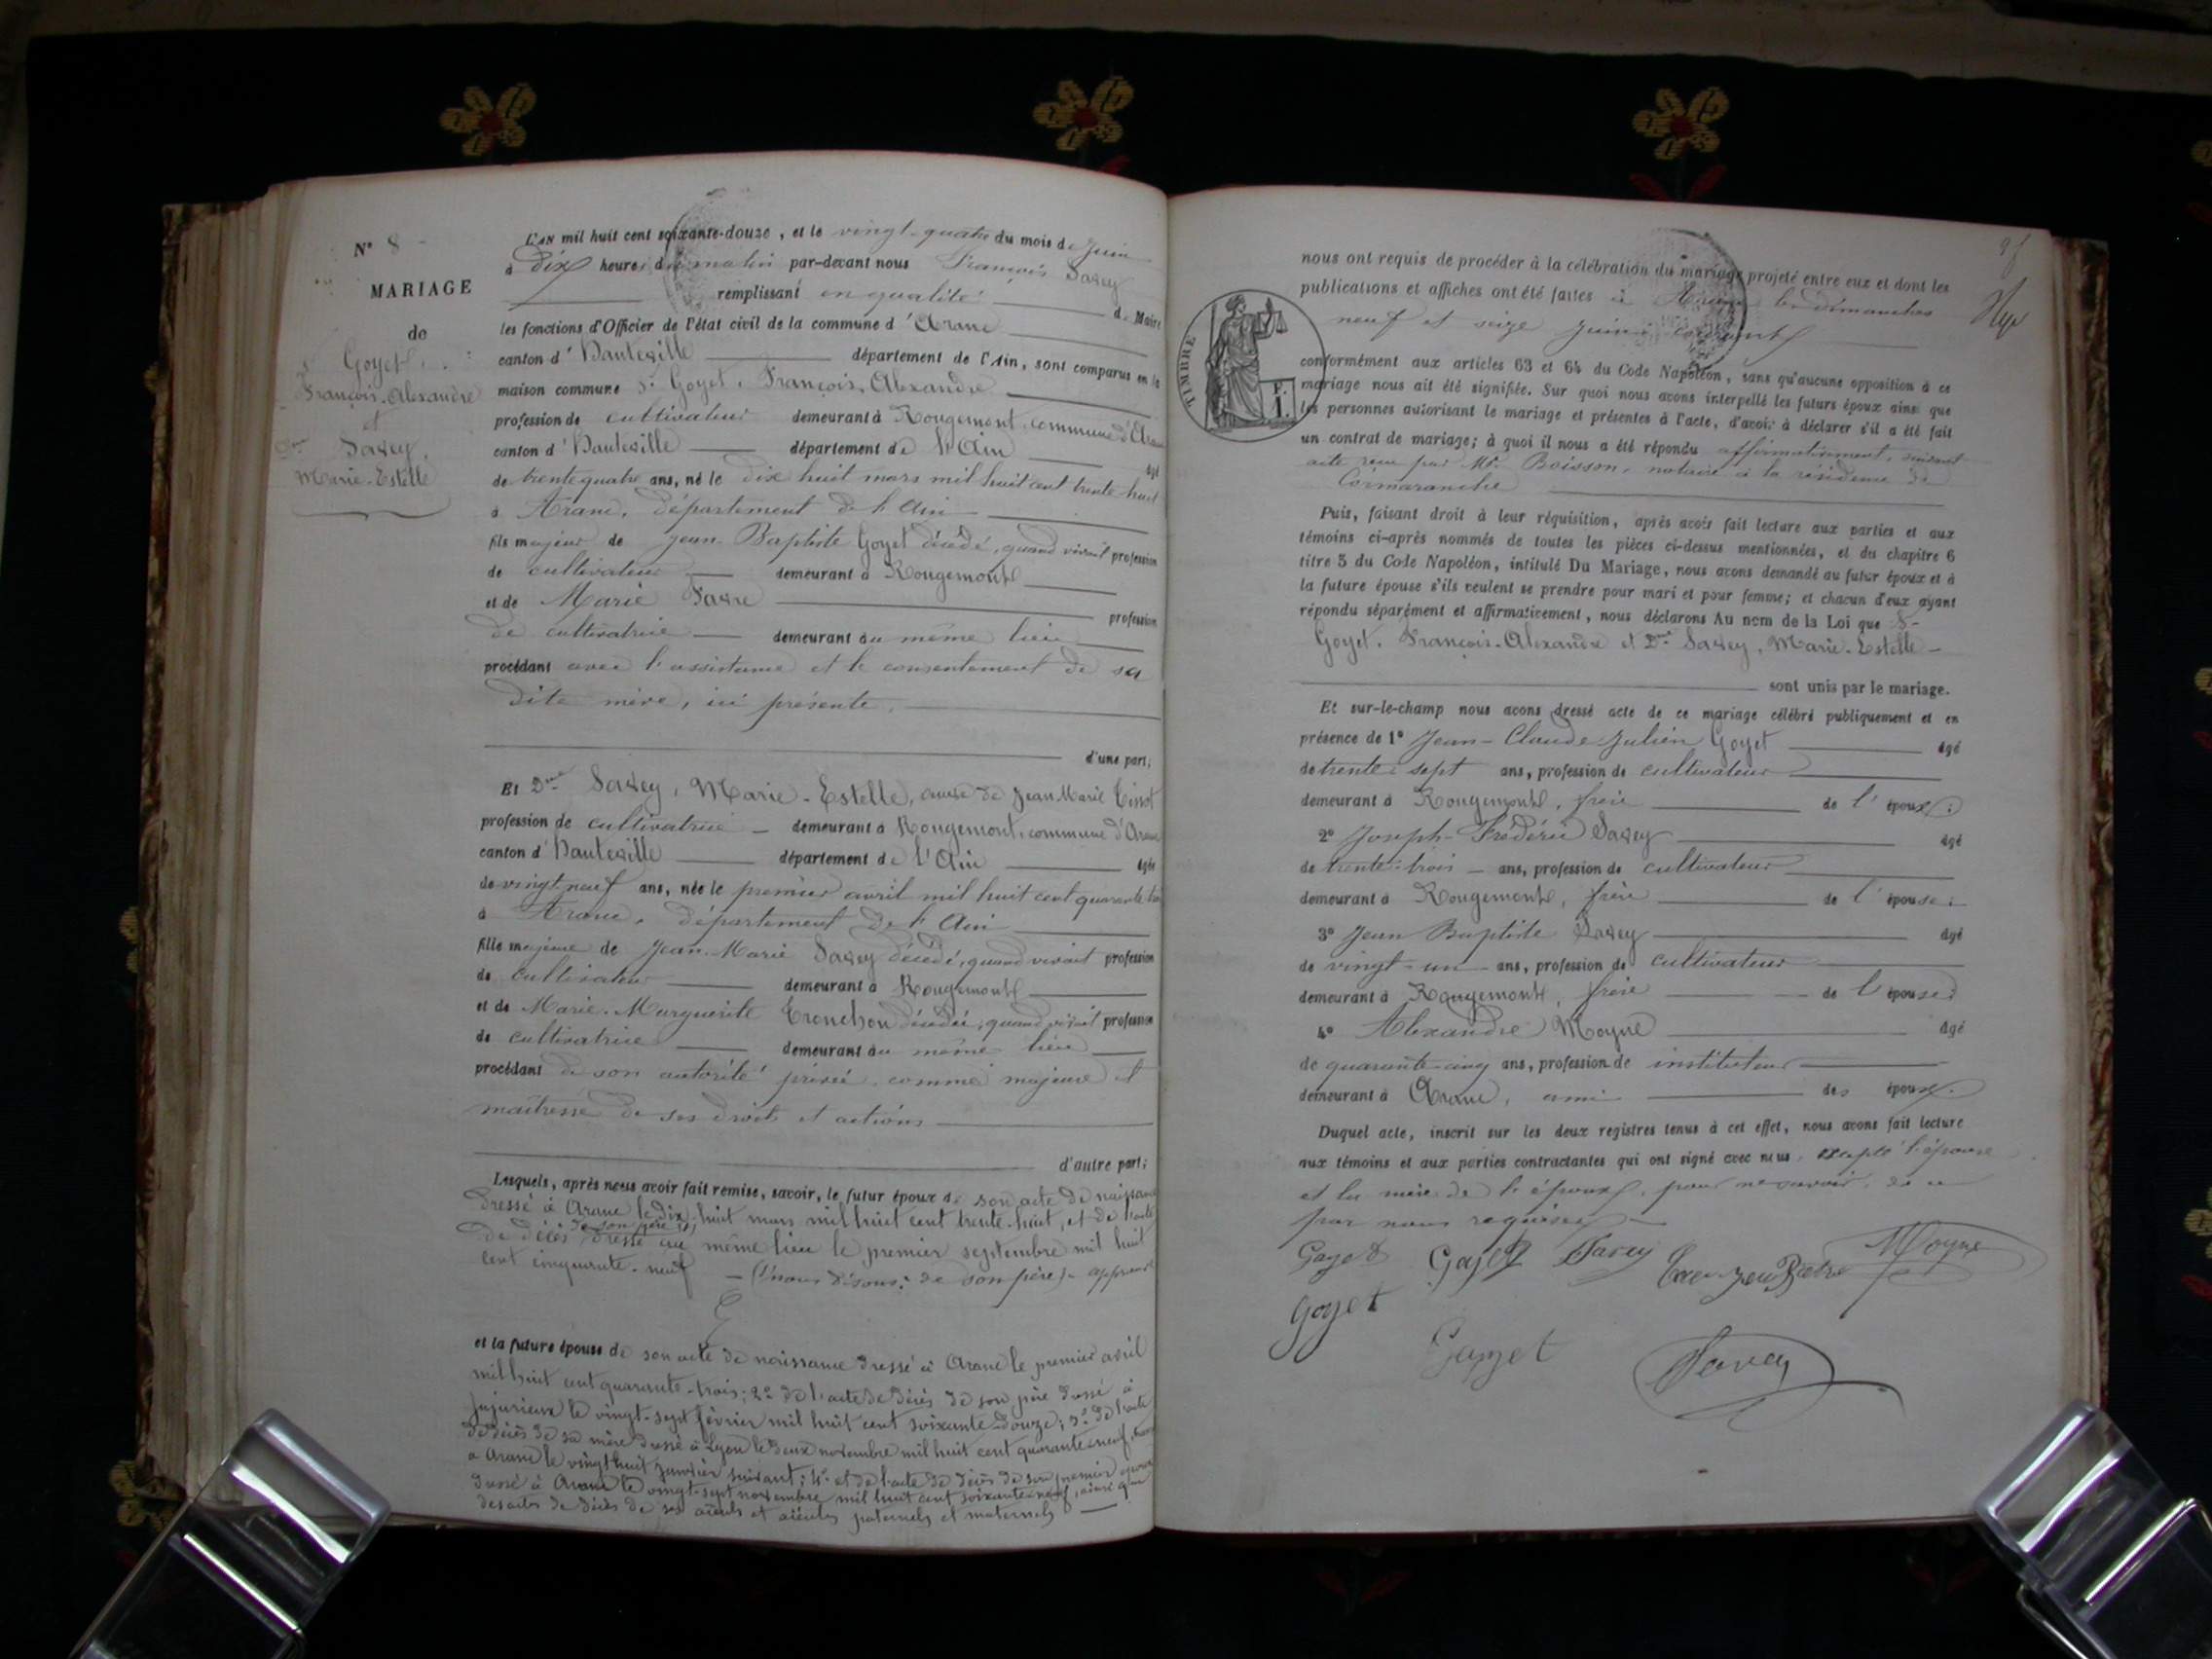 N° 8
MARIAGE
de
Sr Goyet,
François-Alexandre
et
Dme Savey,
Marie-Estelle
L'AN mil huit cent soixante-douze, et le vingt-quatre du mois de juin
à dix heures du matin par-devant nous François Savey
remplissant en qualité de Maire
les fonctions d'Officier de l'état civil de la commune d'Aranc
canton d'Hauteville département de l'Ain, sont comparus en la
maison commune Sr Goyet, François-Alexandre
profession de cultivateur demeurant à Rougemont, commune d'Aranc
canton d'Hauteville département de l'Ain âgé
de trente quatre ans, né le dix huit mars mil huit cent trente huit
à Aranc, département de l'Ain
fils majeur de Jean-Baptiste Goyet décédé, quand vivait profession
de cultivateur demeurant à Rougemont
et de Marie Favre profession
de cultivatrice demeurant au même lieu
procédant avec l'assistance et le consentement de sa
dite mère, ici présente,
d'une part;
Et Dme Savey, Marie-Estelle, veuve de Jean-Marie Tissot
profession de cultivatrice demeurant à Rougemont, commune d'Aranc
canton d'Hauteville département de l'Ain âgée
de vingt neuf ans, née le premier avril mil huit cent quarante trois
à Aranc, département de l'Ain
fille majeure de Jean-Marie Savey décédé, quand vivait profession
de cultivateur demeurant à Rougemont
et de Marie-Marguerite Tronchon décédée, quand vivait profession
de cultivatrice demeurant au même lieu
procédant de son autorité privée comme majeure et
maîtresse de ses droits et actions
d'autre part;
Lesquels, après nous avoir fait remise, savoir, le futur époux de son acte de naissance
dressé à Aranc le dix huit mars mil huit cent trente-huit, et de l'acte
de son père
de décès dressé au même lieu le premier septembre mil huit
cent cinquante-neuf (Nous disons: de son père)
et la future épouse de son acte de naissance dressé à Aranc le premier avril
mil huit cent quarante-trois; 2° de l'acte de décès de son père dressé à
Jujurieux le vingt-sept février mil huit cent soixante-douze; 3° de l'acte
de décès de sa mère dressé à Lyon le deux novembre mil huit cent quarante-neuf
à Aranc le vingt huit janvier suivant; 4° et de l'acte de décès de son premier époux
dressé à Aranc le vingt-sept novembre mil huit cent soixante-neuf, ainsi que
des actes de décès de ses aïeuls et aïeules paternels et maternels
TIMBRE
nous ont requis de procéder à la célébration du mariage projeté entre eux et dont les
publications et affiches ont été faites à Aranc les dimanches
neuf et seize juin courant
conformément aux articles 63 et 64 du Code Napoléon, sans qu'aucune opposition à ce
mariage nous ait été signifiée. Sur quoi nous avons interpellé les futurs époux ainsi que
les personnes autorisant le mariage et présentes à l'acte, d'avoir à déclarer s'il a été fait
un contrat de mariage; à quoi il nous a été répondu affirmativement, suivant
acte reçu par Me Boisson, notaire à la résidence de
Cormaranche
Puis, faisant droit à leur réquisition, après avoir fait lecture aux parties et aux
témoins ci-après nommés de toutes les pièces ci-dessus mentionnées, et du chapitre 6
titre 5 du Code Napoléon, intitulé Du Mariage, nous avons demandé au futur époux et à
la future épouse s'ils veulent se prendre pour mari et pour femme; et chacun d'eux ayant
répondu séparément et affirmativement, nous déclarons Au nom de la Loi que Sr
Goyet, François-Alexandre et Dme Savey, Marie-Estelle
sont unis par le mariage.
Et sur-le-champ nous avons dressé acte de ce mariage célébré publiquement et en
présence de 1° Jean-Claude Julien Goyet âgé
de trente-sept ans, profession de cultivateur
demeurant à Rougemont, frère de l'époux;
2° Joseph-Frédéric Savey âgé
de trente-trois ans, profession de cultivateur
demeurant à Rougemont, frère de l'épouse;
3° Jean Baptiste Savey âgé
de vingt-un ans, profession de cultivateur
demeurant à Rougemont, frère de l'épouse;
4° Alexandre Moyne âgé
de quarante-cinq ans, profession de instituteur
demeurant à Aranc, ami des époux.
Duquel acte, inscrit sur les deux registres tenus à cet effet, nous avons fait lecture
aux témoins et aux parties contractantes qui ont signé avec nous, excepté l'épouse
et la mère de l'époux, pour ne savoir, de ce
par nous requises
Goyet Goyet Savey Moyne
Goyet
Goyet Savey